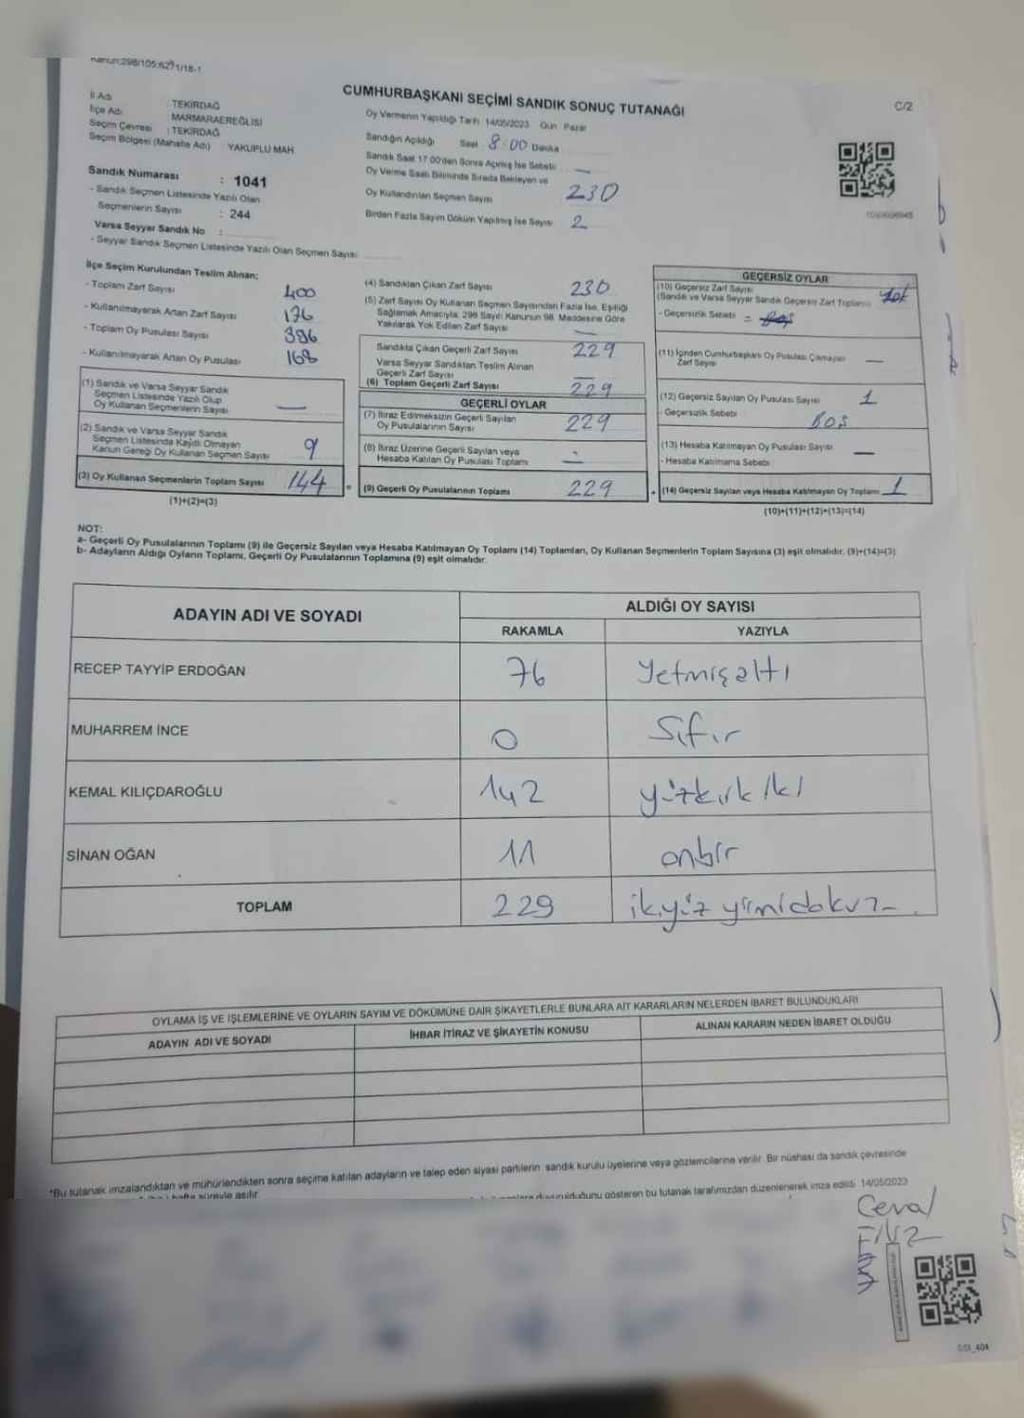 Kanun:298/105;6271/18-1
CUMHURBAŞKANI SEÇİMİ SANDIK SONUÇ TUTANAĞI
C/2
İl Adı : TEKİRDAĞ
İlçe Adı : MARMARAEREĞLİSİ
Seçim Çevresi : TEKİRDAĞ
Seçim Bölgesi (Mahalle Adı) : YAKUPLU MAH
Oy Vermenin Yapıldığı Tarih 14/05/2023 Gün Pazar
Sandığın Açıldığı Saat 8:00 Dakika
Sandık Saat 17:00'den Sonra Açılmış İse Sebebi
Oy Verme Saati Bitiminde Sırada Bekleyen ve
Oy Kullandırılan Seçmen Sayısı 230
Birden Fazla Sayım Döküm Yapılmış İse Sayısı 2
Sandık Numarası : 1041
- Sandık Seçmen Listesinde Yazılı Olan
Seçmenlerin Sayısı : 244
Varsa Seyyar Sandık No :
- Seyyar Sandık Seçmen Listesinde Yazılı Olan Seçmen Sayısı
İlçe Seçim Kurulundan Teslim Alınan;
- Toplam Zarf Sayısı 400
- Kullanılmayarak Artan Zarf Sayısı 176
- Toplam Oy Pusulası Sayısı 396
- Kullanılmayarak Artan Oy Pusulası 168
(1) Sandık ve Varsa Seyyar Sandık
Seçmen Listesinde Yazılı Olup
Oy Kullanan Seçmenlerin Sayısı —
(2) Sandık ve Varsa Seyyar Sandık
Seçmen Listesinde Kayıtlı Olmayan
Kanun Gereği Oy Kullanan Seçmen Sayısı 9
(3) Oy Kullanan Seçmenlerin Toplam Sayısı 144
(1)+(2)=(3)
(4) Sandıktan Çıkan Zarf Sayısı 230
(5) Zarf Sayısı Oy Kullanan Seçmen Sayısından Fazla İse, Eşitliği
Sağlamak Amacıyla, 298 Sayılı Kanunun 98. Maddesine Göre
Yakılarak Yok Edilen Zarf Sayısı —
Sandıkta Çıkan Geçerli Zarf Sayısı 229
Varsa Seyyar Sandıktan Teslim Alınan
Geçerli Zarf Sayısı —
(6) Toplam Geçerli Zarf Sayısı 229
GEÇERLİ OYLAR
(7) İtiraz Edilmeksizin Geçerli Sayılan
Oy Pusulalarının Sayısı 229
(8) İtiraz Üzerine Geçerli Sayılan veya
Hesaba Katılan Oy Pusulası Toplamı —
(9) Geçerli Oy Pusulalarının Toplamı 229
GEÇERSİZ OYLAR
(10) Geçersiz Zarf Sayısı
(Sandık ve Varsa Seyyar Sandık Geçersiz Zarf Toplamı)
- Geçersizlik Sebebi =
(11) İçinden Cumhurbaşkanı Oy Pusulası Çıkmayan
Zarf Sayısı —
(12) Geçersiz Sayılan Oy Pusulası Sayısı 1
- Geçersizlik Sebebi BOŞ
(13) Hesaba Katılmayan Oy Pusulası Sayısı —
- Hesaba Katılmama Sebebi
(14) Geçersiz Sayılan veya Hesaba Katılmayan Oy Toplamı 1
(10)+(11)+(12)+(13)=(14)
NOT:
a- Geçerli Oy Pusulalarının Toplamı (9) ile Geçersiz Sayılan veya Hesaba Katılmayan Oy Toplamı (14) Toplamları, Oy Kullanan Seçmenlerin Toplam Sayısına (3) eşit olmalıdır. (9)+(14)=(3)
b- Adayların Aldığı Oyların Toplamı, Geçerli Oy Pusulalarının Toplamına (9) eşit olmalıdır.
ADAYIN ADI VE SOYADI
ALDIĞI OY SAYISI
RAKAMLA YAZIYLA
RECEP TAYYİP ERDOĞAN 76 Yetmişaltı
MUHARREM İNCE 0 Sıfır
KEMAL KILIÇDAROĞLU 142 yüzkırkiki
SİNAN OĞAN 11 onbir
TOPLAM 229 ikiyüz yirmidokuz
OYLAMA İŞ VE İŞLEMLERİNE VE OYLARIN SAYIM VE DÖKÜMÜNE DAİR ŞİKAYETLERLE BUNLARA AİT KARARLARIN NELERDEN İBARET BULUNDUKLARI
ADAYIN ADI VE SOYADI İHBAR İTİRAZ VE ŞİKAYETİN KONUSU ALINAN KARARIN NEDEN İBARET OLDUĞU
*Bu tutanak imzalandıktan ve mühürlendikten sonra seçime katılan adayların ve talep eden siyasi partilerin sandık kurulu üyelerine veya gözlemcilerine verilir. Bir nüshası da sandık çevresinde
bir hafta süreyle asılır.
duyurulduğunu gösteren bu tutanak tarafımızdan düzenlenerek imza edildi. 14/05/2023